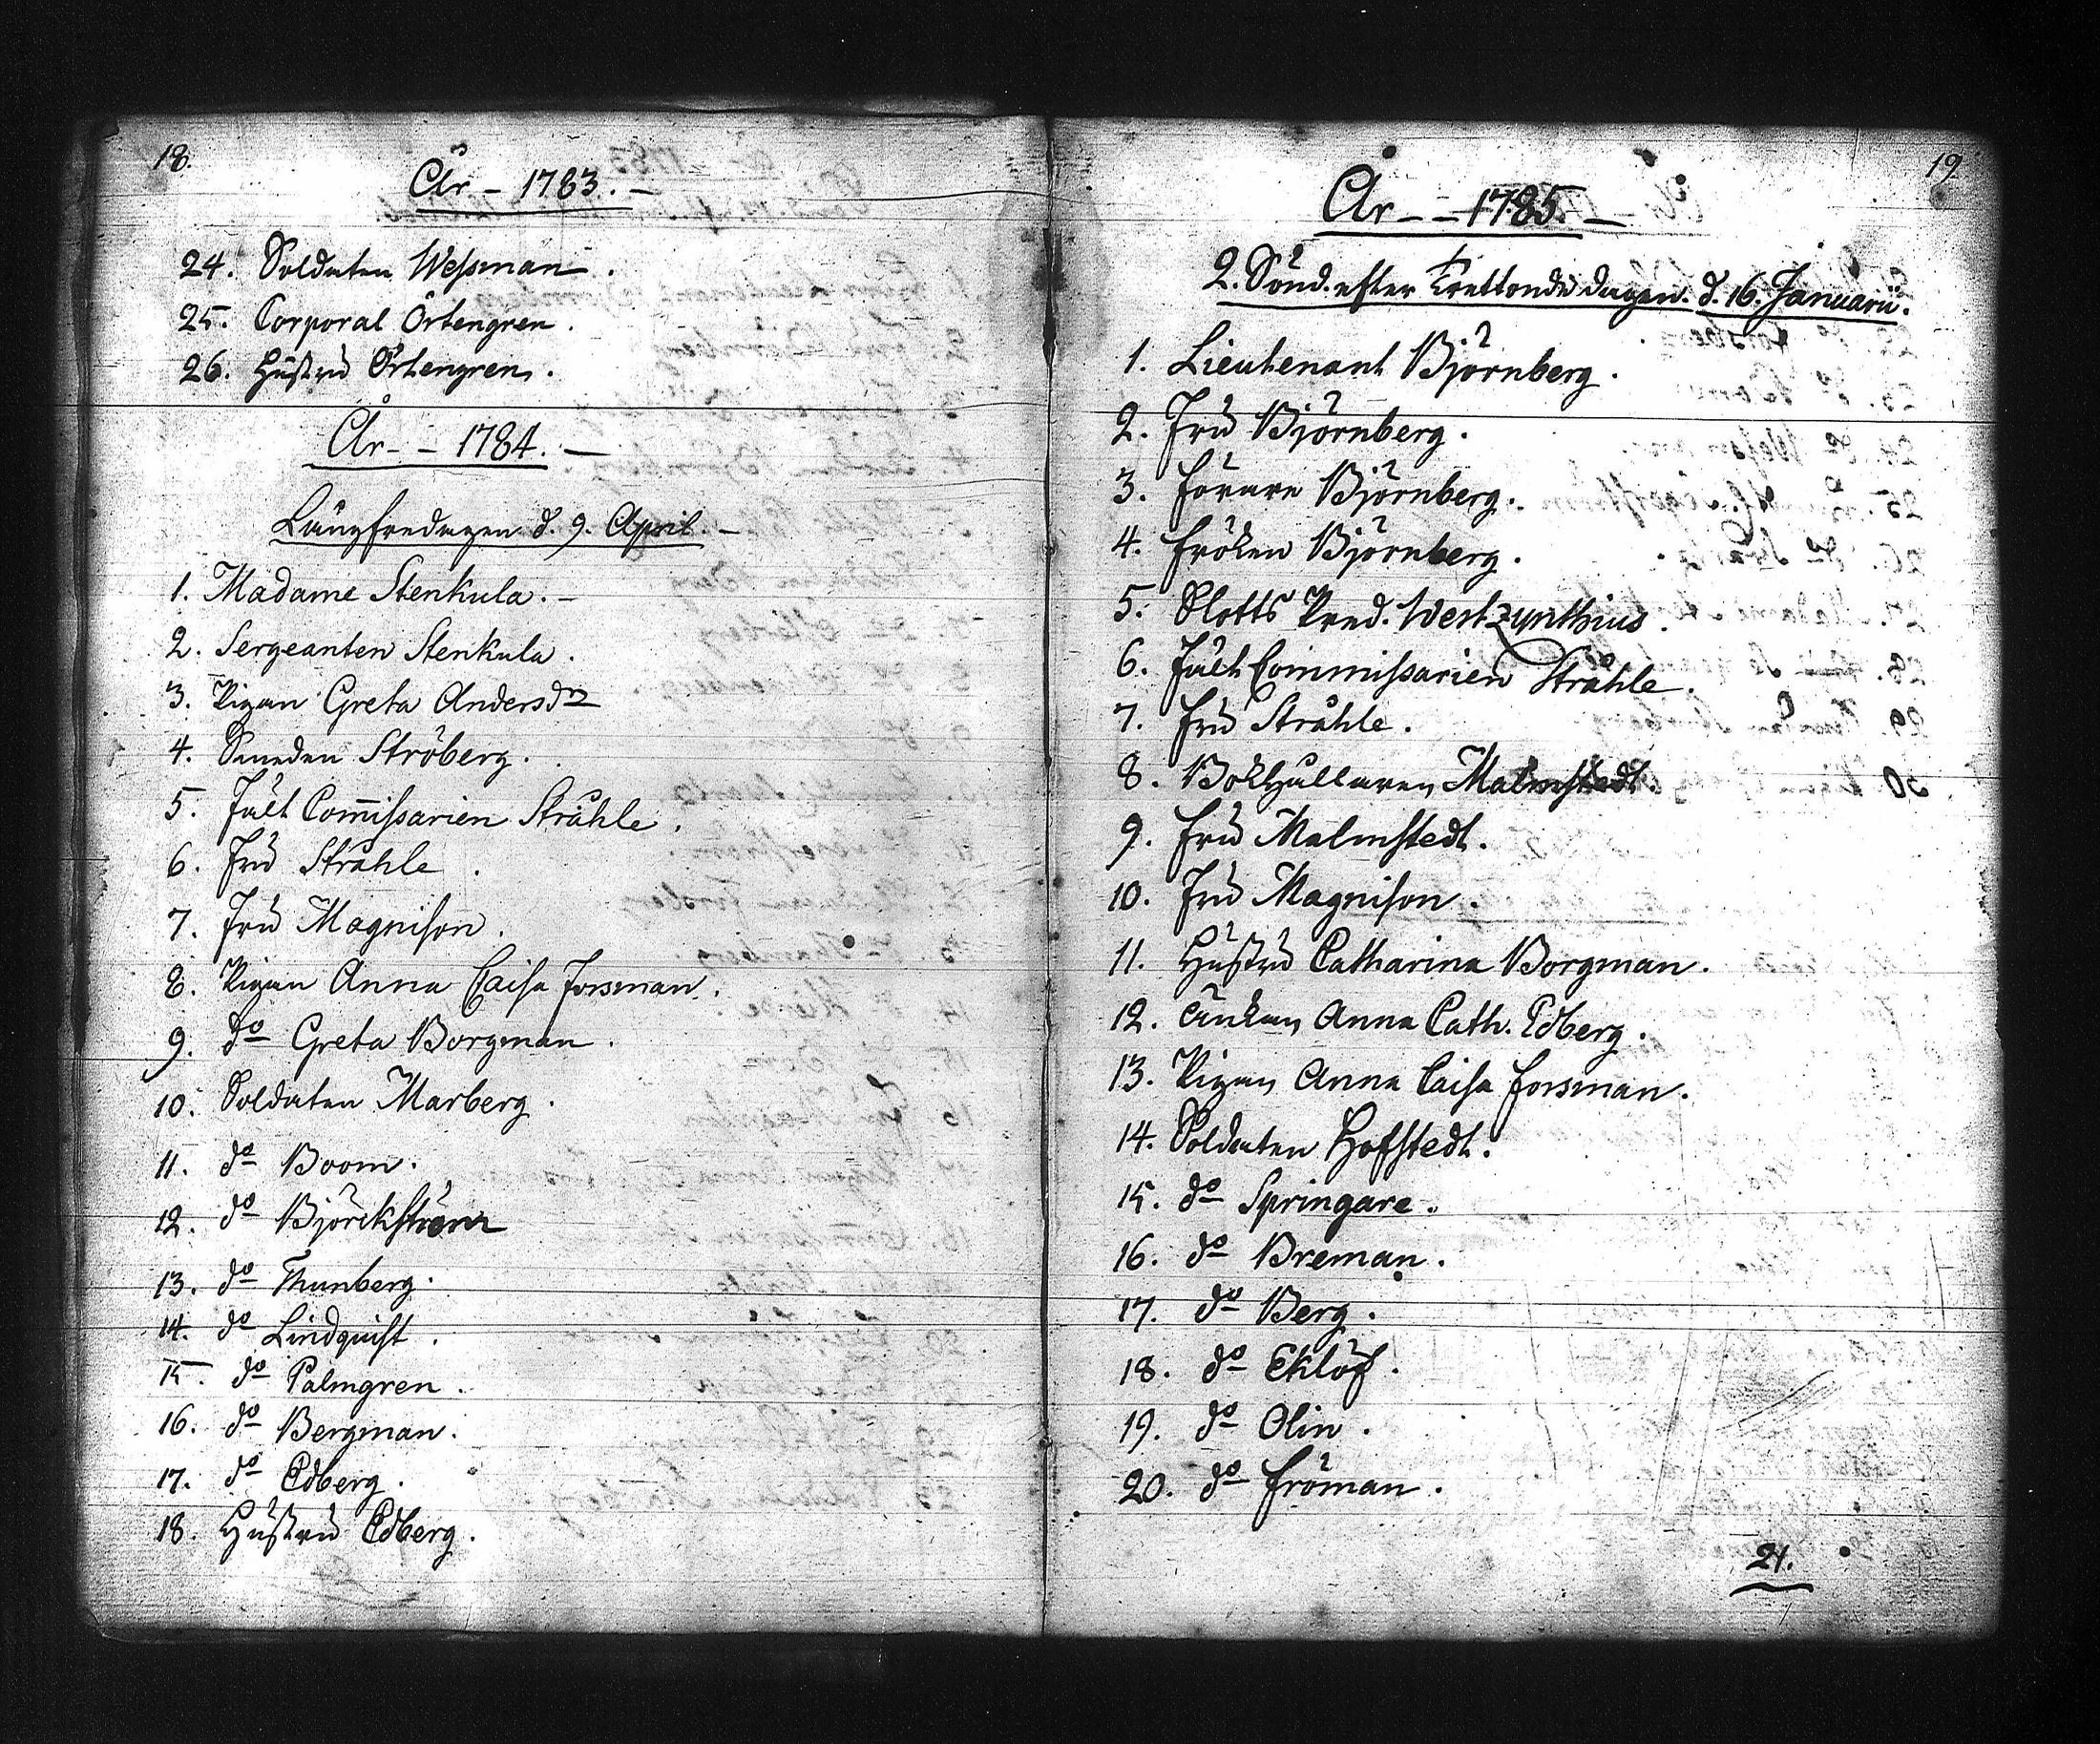 18.
År - 1783. -
24. Soldaten Wessman.
25. Corporal Örtengren.
26. Hustru Örtengren.
År - - 1784. -
Långfredagen d. 9. April. -
1. Madame Stenkula. -
2. Sergeanten Stenkula.
3. Pigan Greta Andersdr
4. Smeden Ströberg.
5. Fält Comissarien Stråhle.
6. Fru Stråhle.
7. Fru Magnison.
8. Pigan Anna Caisa Forsman.
9. do Greta Borgman.
10. Soldaten Marberg.
11. do Boom.
12. do Björckström
13. do Thunberg.
14. do Lindquist.
15. do Palmgren.
16. do Bergman.
17. do Edberg.
18. Hustru Edberg.
19
År - - 1785. -
2. Sönd. efter Trettonde dagen. d. 16. Januarii.
1. Lieutenant Björnberg.
2. Fru Björnberg.
3. Förare Björnberg.
4. Fröken Björnberg.
5. Slotts Pred. Westzynthius.
6. Fält Commissarien Stråhle.
7. Fru Stråhle.
8. Bokhållaren Malmstedt.
9. Fru Malmstedt.
10. Fru Magnison.
11. Hustru Catharina Borgman.
12. Änkan Anna Cath. Edberg.
13. Pigan Anna Caisa Forsman.
14. Soldaten Hofstedt.
15. do Springare.
16. do Breman.
17. do Berg.
18. do Eklöf.
19. do Olin.
20. do Fröman.
21.